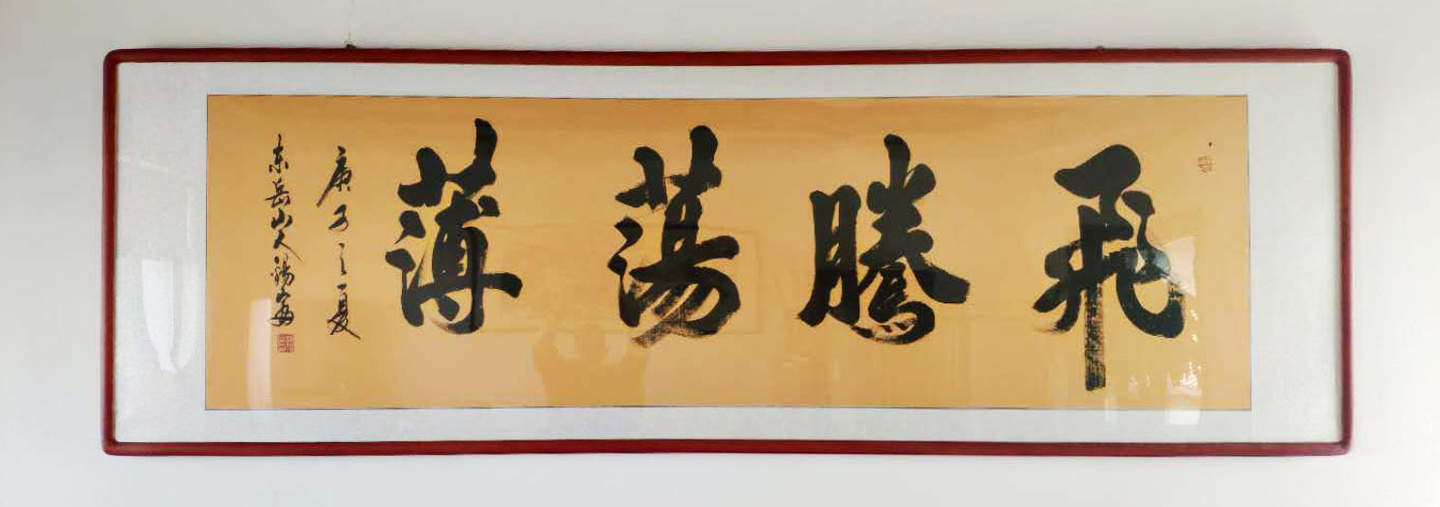 飛騰蕩薄
庚子之夏
东岳山人锡寅